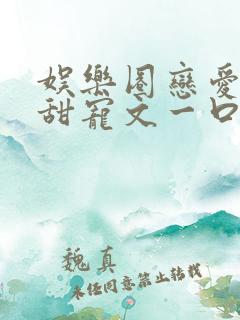 娱樂圈戀愛
甜寵文一口
魏真
未任同意禁止转载